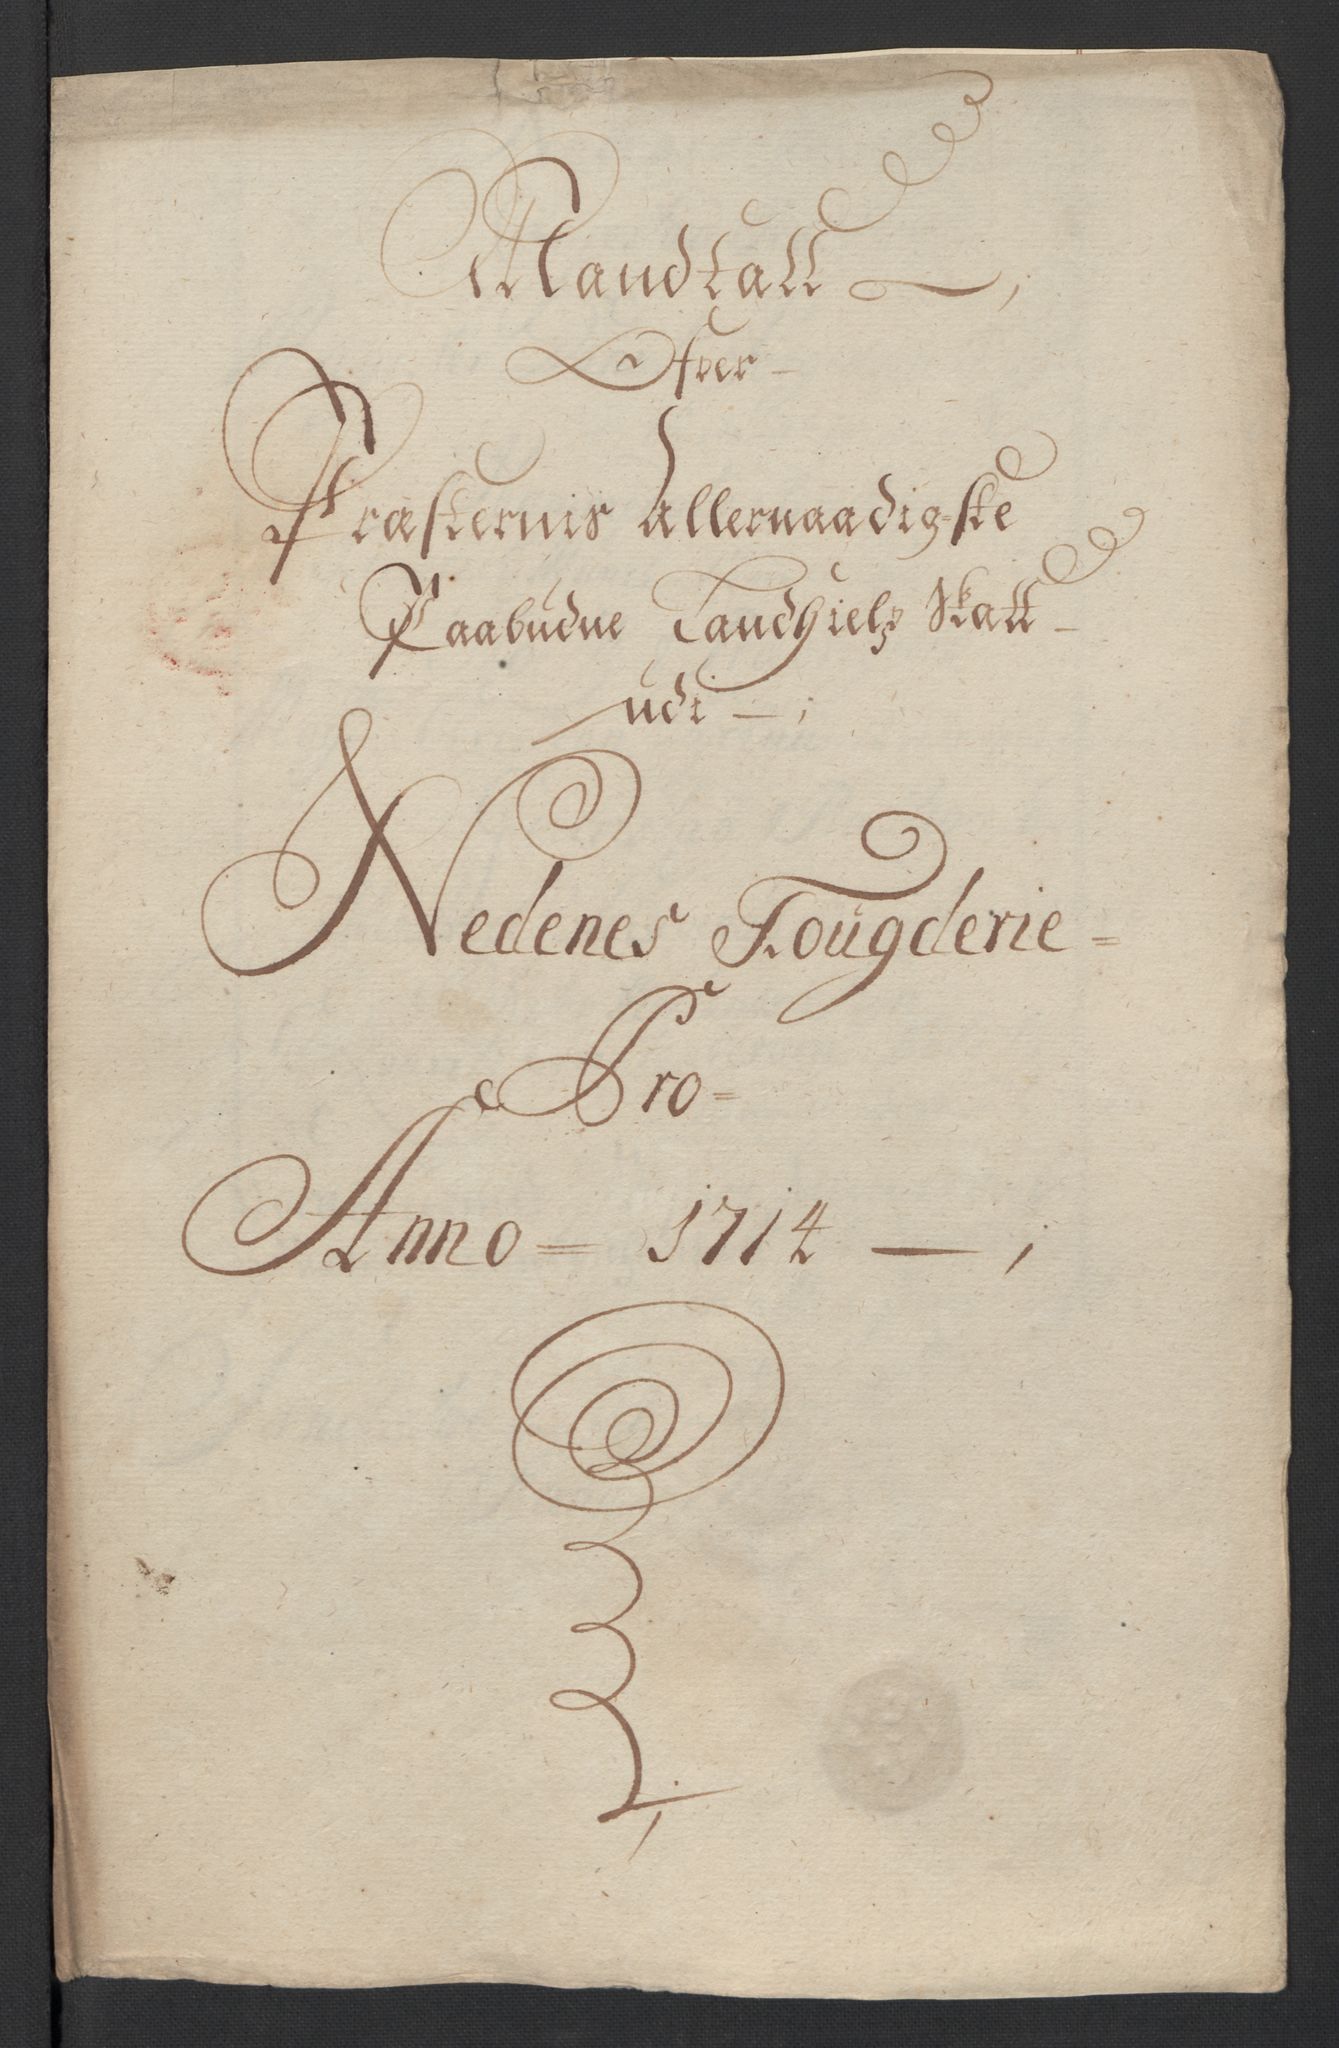 Mandtall
Ofver
Præsternis Allernaadigste
Paabudne Landhielp Skatt
udi
Nedenes Fougderie
Pro
Anno 1714